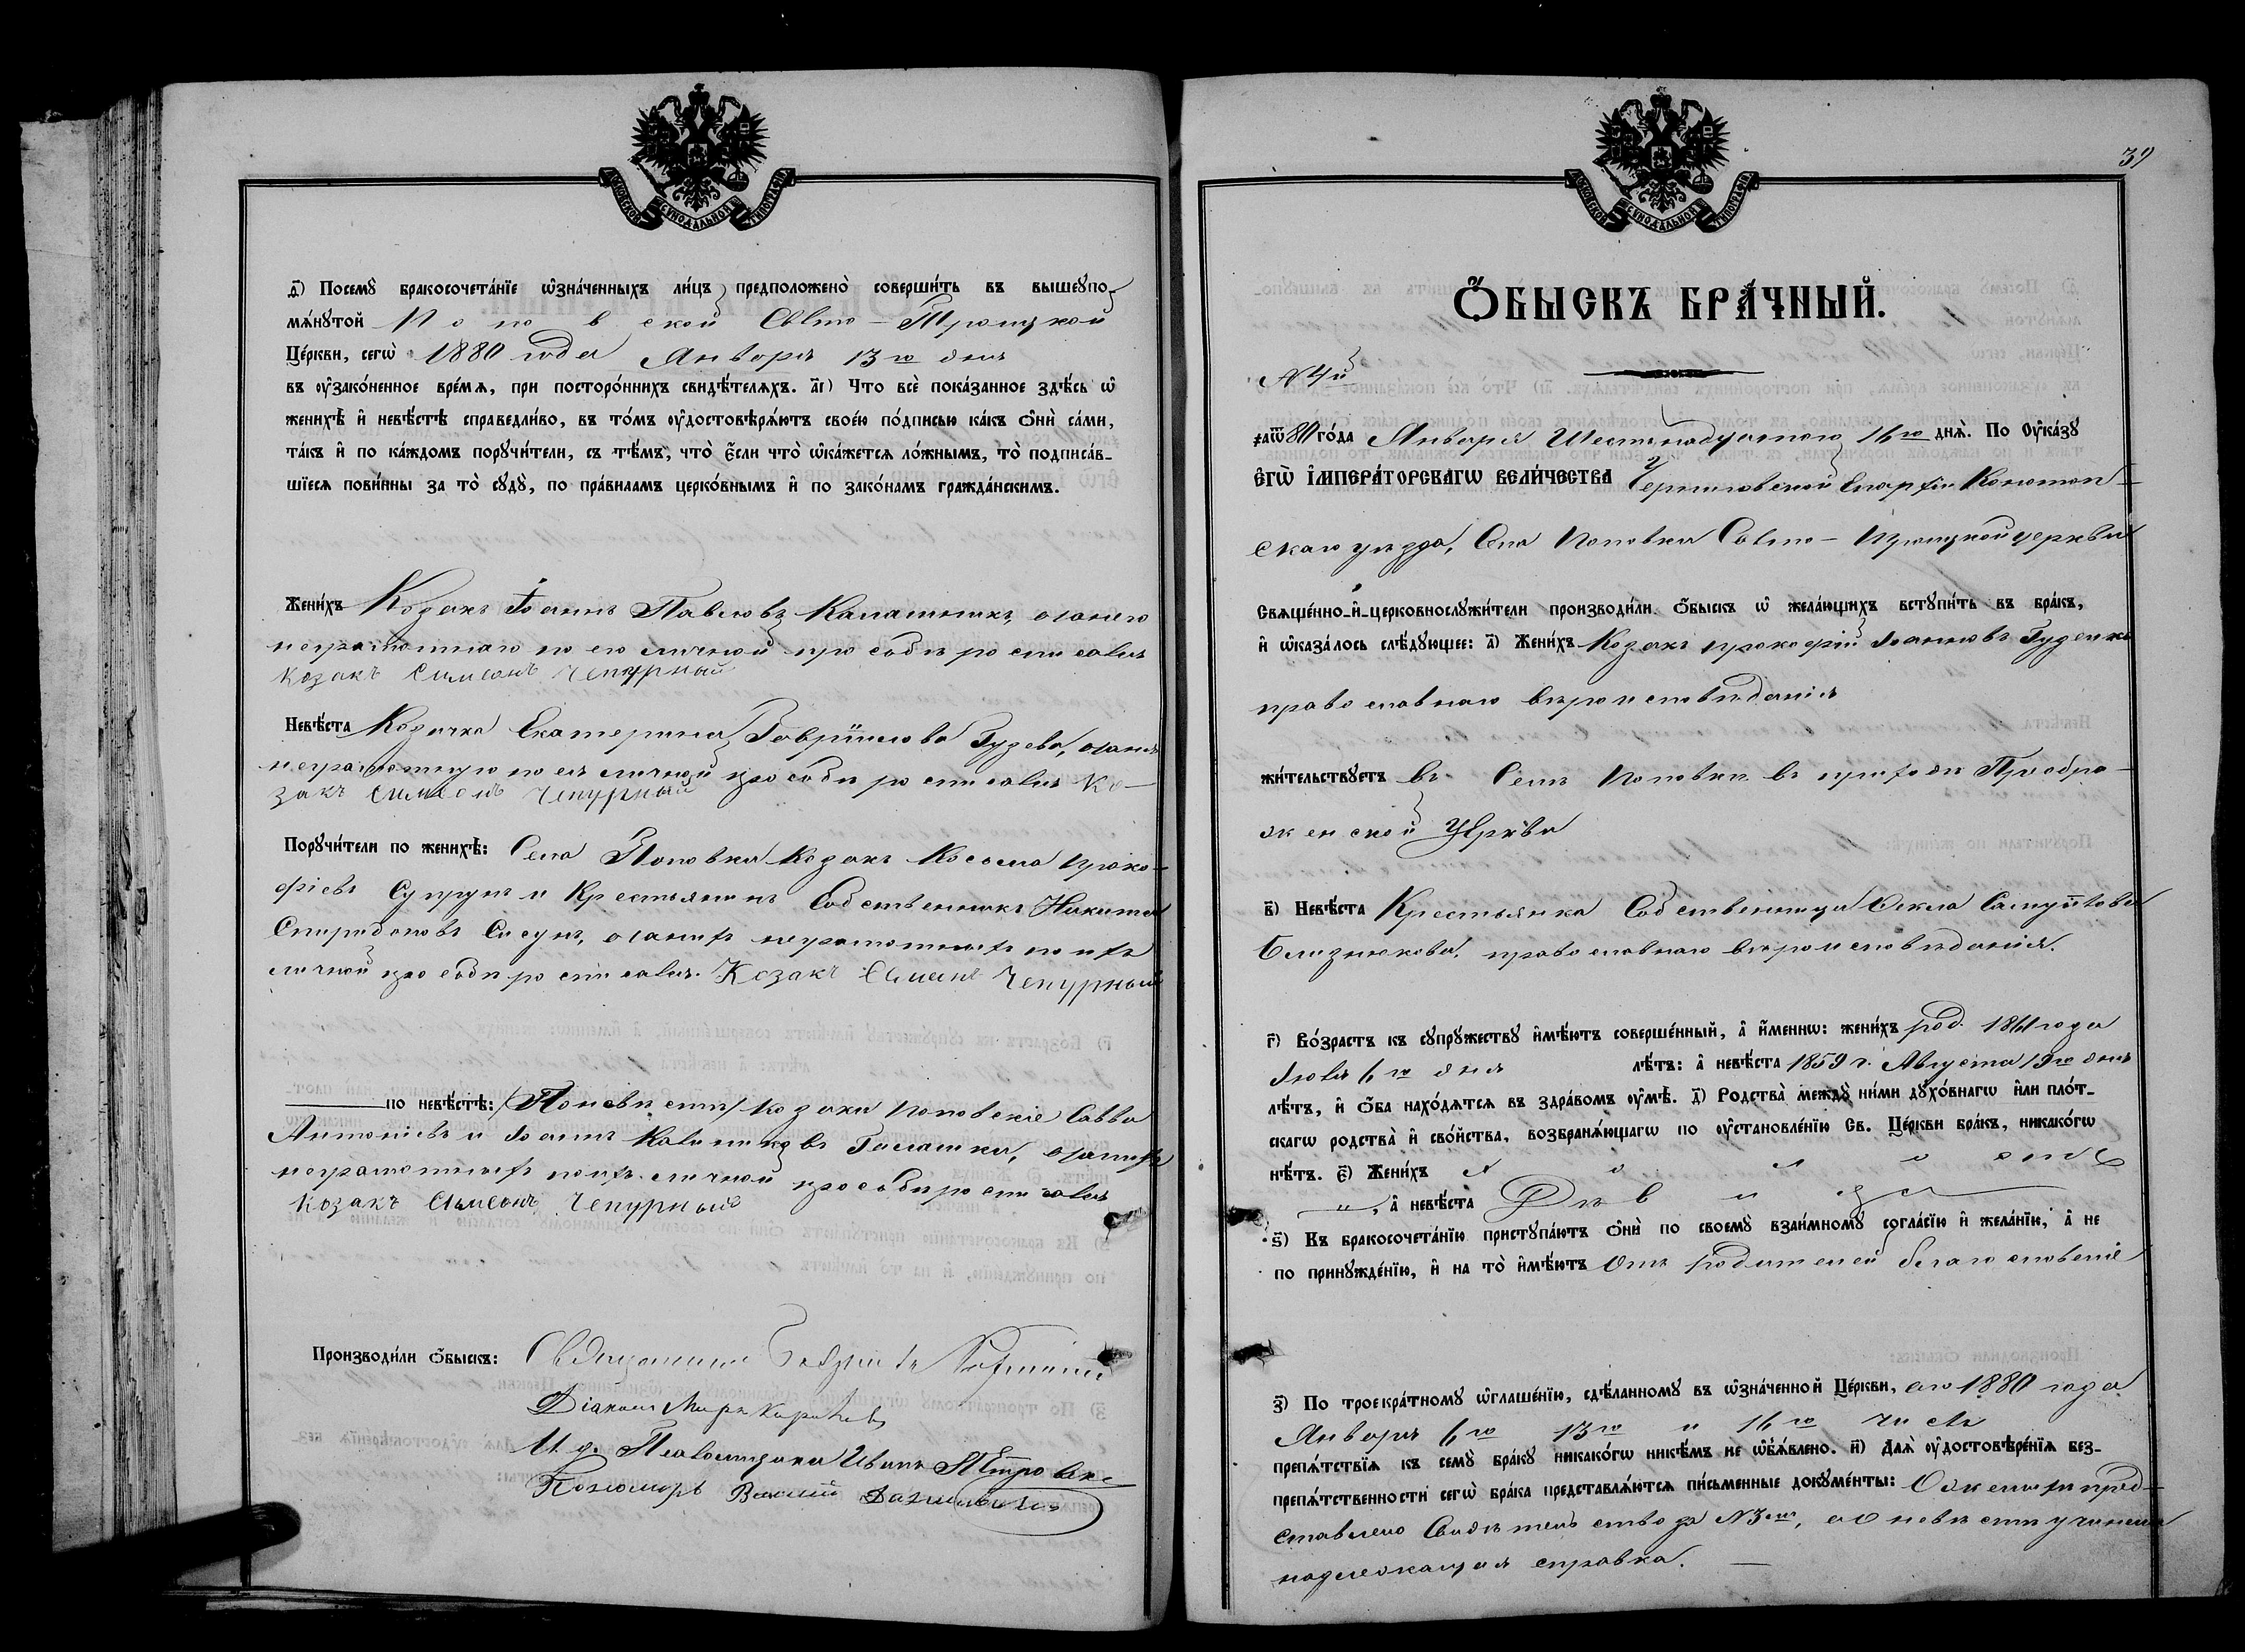 МОСКОВСКОЙ СѴНОДАЛЬНОЙ ТИПОГРАФІИ
ꙇ҃) Посемꙋ̀ бракосочета́нїе ѡ҆зна́ченныхъ ли́цъ предположено̀ соверши́ть въ вышеꙋпо-
мѧ́нꙋтой Поповской Свято-Троицкой
Це́ркви, сегѡ̀ 1880 года Января 13го дня
въ ᲂу҆зако́ненное вре́мѧ, при посторо́ннихъ свидѣ́телѧхъ. а҃і) Что̀ всѐ пока́занное здѣ́сь ѡ҆
женихѣ̀ и҆ невѣ́стѣ справедли́во, въ то́мъ ᲂу҆достовѣрѧ́ютъ свое́ю по́дписью ка́къ ѻ҆нѝ са́ми,
та́къ и҆ по ка́ждомъ порꙋчи́тели, съ тѣ́мъ, что̀ є҆́сли что̀ ѡ҆ка́жетсѧ ло́жнымъ, то̀ подписа́в-
шїесѧ пови́нны за то̀ сꙋдꙋ̀, по пра́виламъ церко́внымъ и҆ по зако́намъ гражда́нскимъ.
Жени́хъ Козакъ Іоаннъ Павловъ Калашникъ, а за него
неграмотнаго по его личной просьбѣ росписался
козакъ Симеонъ Чепурный
Невѣ́ста Козачка Екатерина Гавріилова Гузева, а за нея
неграмотную по ея личной просьбѣ росписался Ко-
закъ Симеонъ Чепурный
Порꙋчи́тели по женихѣ̀: Села Поповки Козакъ Косьма Проко-
фіевъ Супрунъ и Крестьянинъ Собственникъ Никита
Спиридоновъ Сисунъ, а за нихъ неграмотныхъ по ихъ
личной просьбѣ росписался Козакъ Симеонъ Чепурный
по невѣ́стѣ: По невѣстѣ козаки Поповскіе Савва
Антоніевъ и Іоаннъ Калиниковъ Галашки, а за нихъ
неграмотныхъ по ихъ личной просьбѣ росписался
Козакъ Симеонъ Чепурный
Производи́ли ѻ҆́быскъ: Священникъ
Діаконъ
И. д. Псаломщика Иванъ Петровск
Пономарь
39
МОСКОВСКОЙ СѴНОДАЛЬНОЙ ТИПОГРАФІИ
Ѻ҆́БЫСКЪ БРА́ЧНЫЙ.
№ 4й
҂аѡ҃80 го́да Января Шестнадцатаго 16го днѧ̀. По Оу҆ка́зꙋ
Є҆гѡ̀ І҆мпера́торскагѡ Вели́чества Черниговской Епархіи Конотоп-
скаго уѣзда, Села Поповки Свято-Троицкой церкви
Свѧще́нно-и҆-церковнослꙋжи́тели производи́ли ѻ҆́быскъ ѡ҆ жела́ющихъ встꙋпи́ть въ бра́къ,
и҆ ѡ҆каза́лось слѣ́дꙋющее: а҃) Жени́хъ Козакъ Прокофій Іоанновъ Гуденко
православнаго вѣроисповѣданія
жи́тельствꙋетъ въ Селѣ Поповки въ приходѣ Преобра-
женской Церкви
в҃) Невѣ́ста Крестьянка Собственница Ѳекла Самуилова
Близнюкова, православнаго вѣроисповѣданія.
г҃) Во́зрастъ къ сꙋпрꙋ́жествꙋ и҆мѣ́ютъ соверше́нный, а҆ и҆́меннѡ: жени́хъ род. 1861 года
Іюля 6го дня лѣ́тъ: а҆ невѣ́ста 1859 г. Августа 19го дня
лѣ́тъ, и҆ ѻ҆́ба нахо́дѧтсѧ въ здра́вомъ ᲂу҆мѣ̀. д҃) Родства̀ междꙋ̀ ни́ми дꙋхо́внагѡ и҆лѝ пло́т-
скагѡ родства̀ и҆ сво́йства, возбранѧ́ющагѡ по ᲂу҆становле́нїю Св. Це́ркви бра́къ, никако́гѡ
нѣ́тъ. є҃) Жени́хъ холостъ
„ , а҆ невѣ́ста Дѣвица
ѕ҃) Къ бракосочета́нїю пристꙋпа́ютъ ѻ҆нѝ по своемꙋ̀ взаи́мномꙋ согла́сїю и҆ жела́нїю, а҆ не
по принꙋжде́нїю, и҆ на то̀ и҆мѣ́ютъ отъ родителей благословеніе
з҃) По троекра́тномꙋ ѡ҆глаше́нїю, сдѣ́ланномꙋ въ ѡ҆зна́ченной Це́ркви, сего 1880 года
Января 6го 13го и 16го числъ
препѧ́тствїѧ къ семꙋ̀ бра́кꙋ никако́гѡ никѣ́мъ не ѡ҆б̾ѧ́влено. и҃) Длѧ̀ ᲂу҆достовѣре́нїѧ без-
препѧ́тственности сегѡ̀ бра́ка представлѧ́ютсѧ пи́сьменные докꙋме́нты: О женихѣ пред-
ставлено Свидѣтельство за № 3мъ, а о невѣстѣ учинена
надлежащая справка.